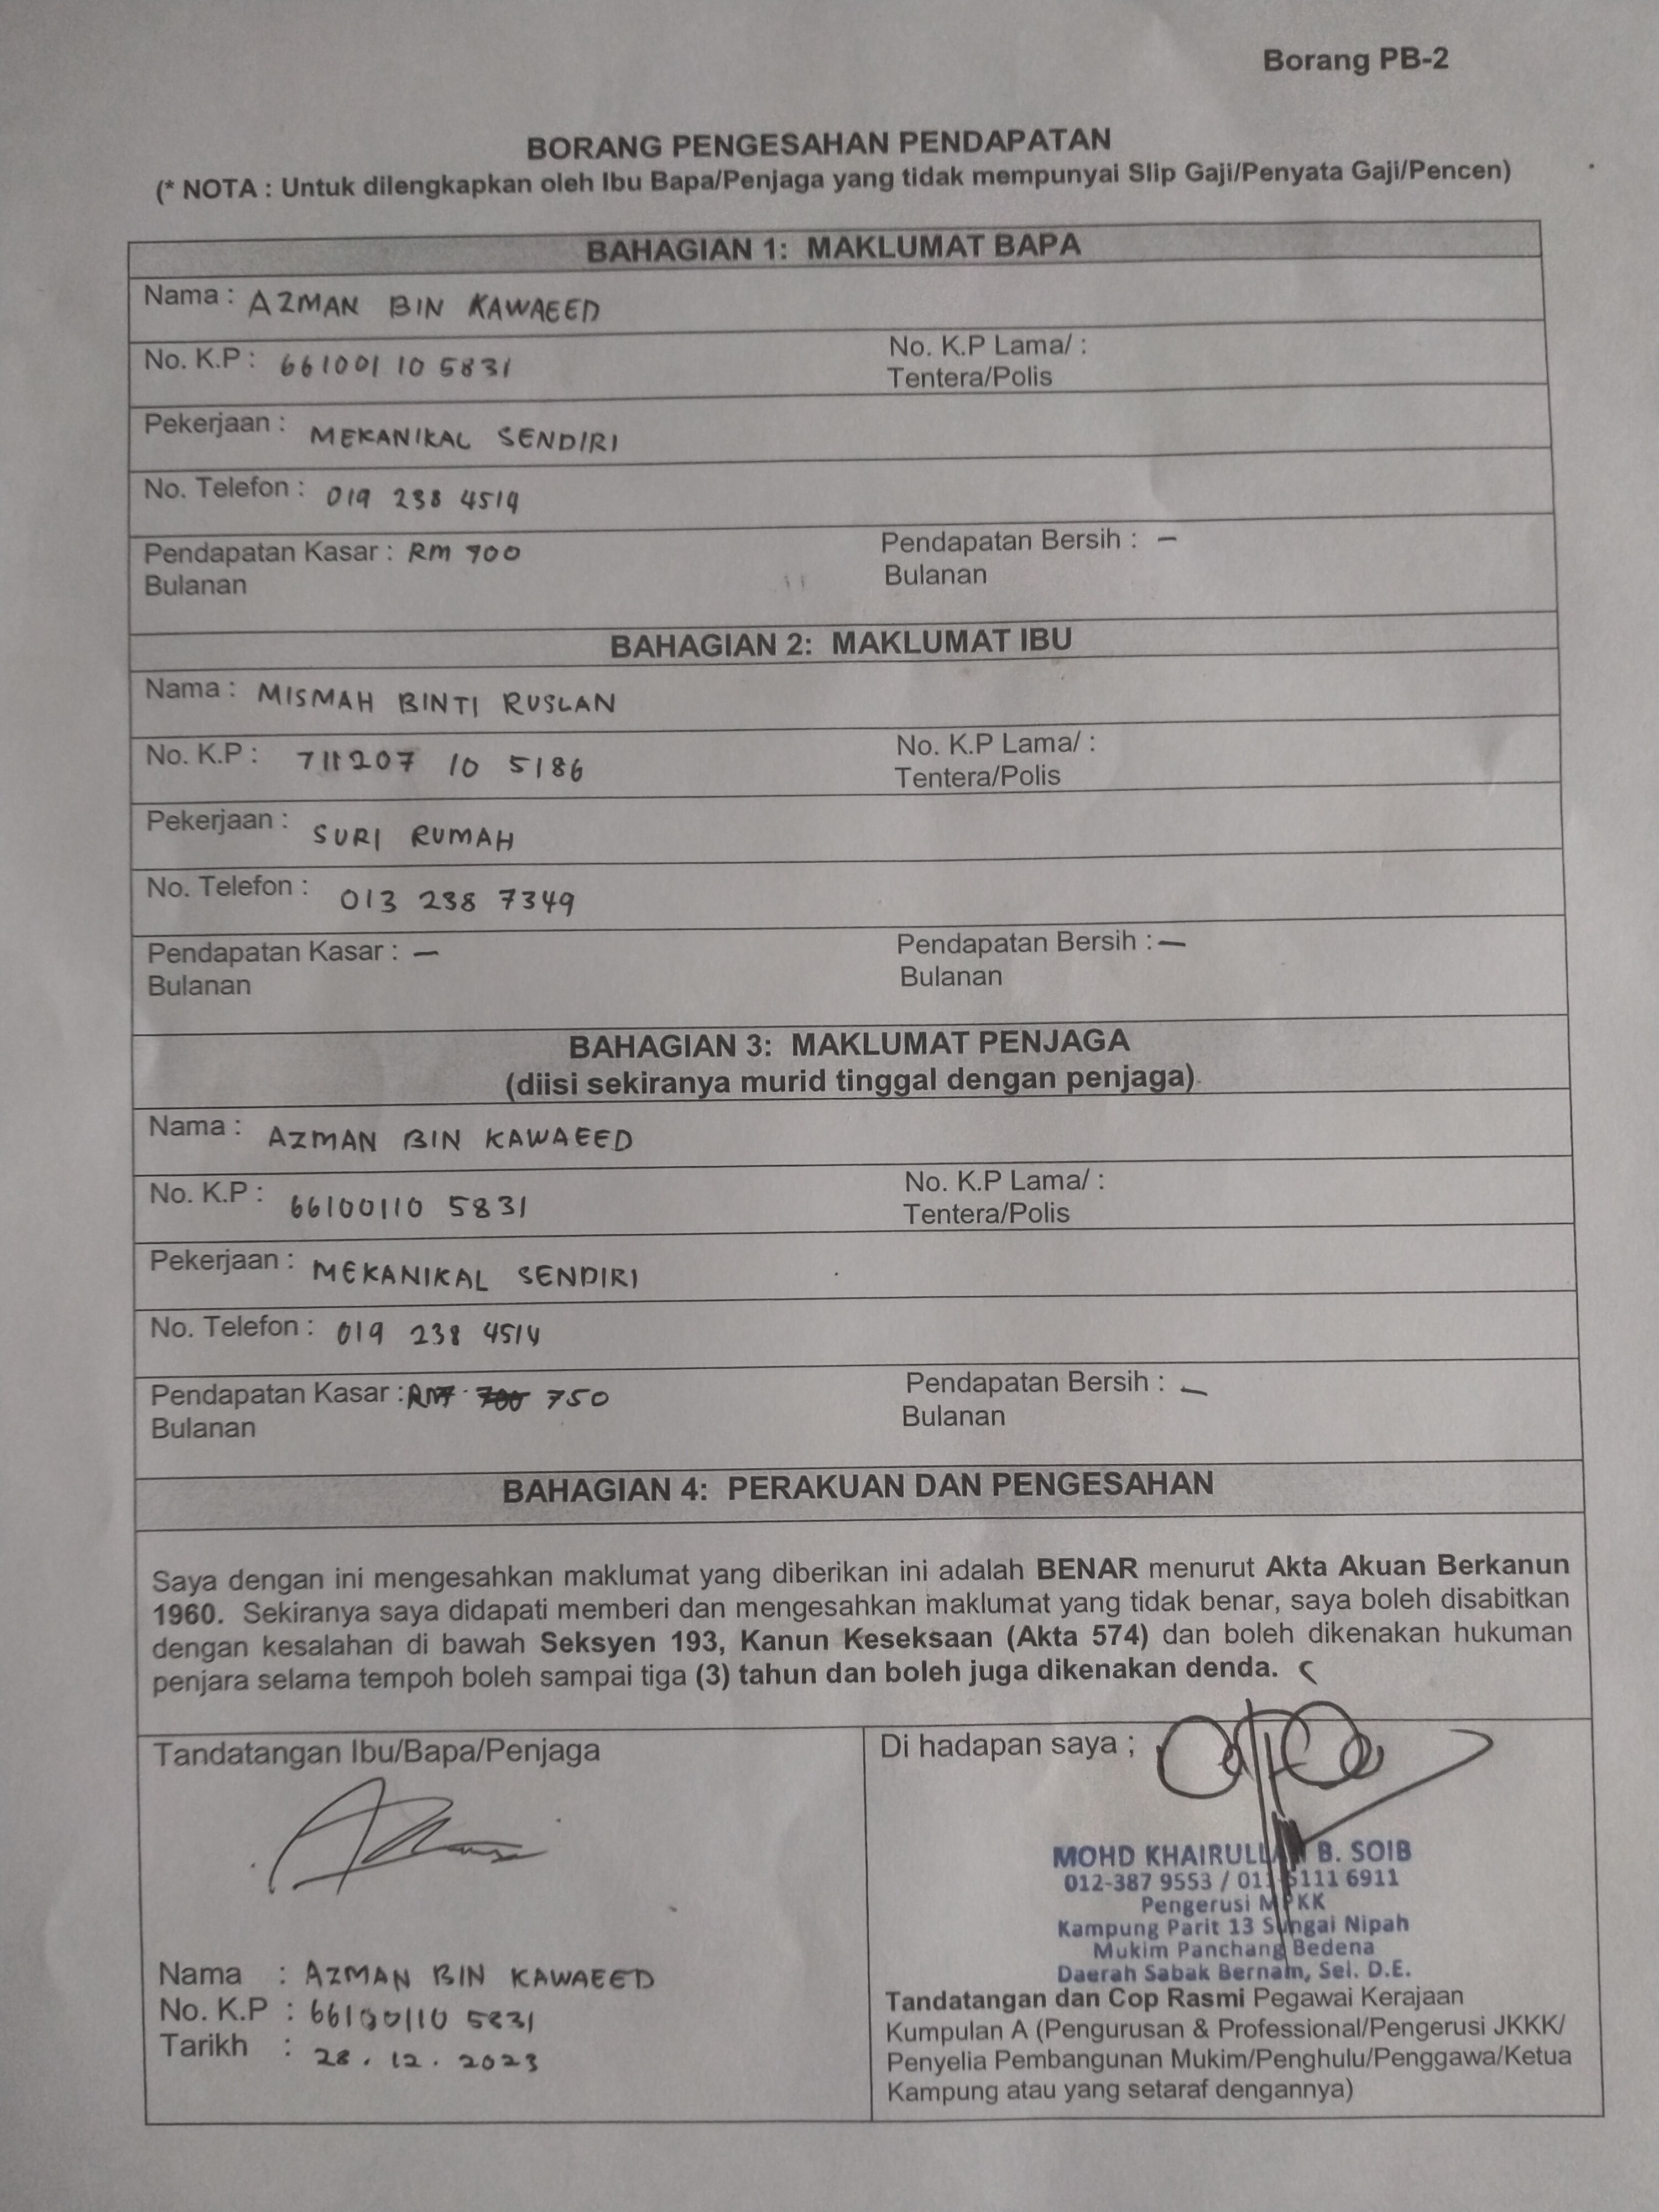 Borang PB-2
BORANG PENGESAHAN PENDAPATAN
(* NOTA : Untuk dilengkapkan oleh Ibu Bapa/Penjaga yang tidak mempunyai Slip Gaji/Penyata Gaji/Pencen)
BAHAGIAN 1: MAKLUMAT BAPA
Nama : AZMAN BIN KAWAEED
No. K.P : 661001 10 5831 No. K.P Lama/ :
Tentera/Polis
Pekerjaan : MEKANIKAL SENDIRI
No. Telefon : 019 238 4519
Pendapatan Kasar : RM 900 Pendapatan Bersih : —
Bulanan Bulanan
BAHAGIAN 2: MAKLUMAT IBU
Nama : MISMAH BINTI RUSLAN
No. K.P : 711207 10 5186 No. K.P Lama/ :
Tentera/Polis
Pekerjaan : SURI RUMAH
No. Telefon : 013 238 7349
Pendapatan Kasar : — Pendapatan Bersih : —
Bulanan Bulanan
BAHAGIAN 3: MAKLUMAT PENJAGA
(diisi sekiranya murid tinggal dengan penjaga)
Nama : AZMAN BIN KAWAEED
No. K.P : 66100110 5831 No. K.P Lama/ :
Tentera/Polis
Pekerjaan : MEKANIKAL SENDIRI
No. Telefon : 019 238
Pendapatan Kasar : RM 750 Pendapatan Bersih : —
Bulanan Bulanan
BAHAGIAN 4: PERAKUAN DAN PENGESAHAN
Saya dengan ini mengesahkan maklumat yang diberikan ini adalah BENAR menurut Akta Akuan Berkanun
1960. Sekiranya saya didapati memberi dan mengesahkan maklumat yang tidak benar, saya boleh disabitkan
dengan kesalahan di bawah Seksyen 193, Kanun Keseksaan (Akta 574) dan boleh dikenakan hukuman
penjara selama tempoh boleh sampai tiga (3) tahun dan boleh juga dikenakan denda.
Tandatangan Ibu/Bapa/Penjaga
Nama : AZMAN BIN KAWAEED
No. K.P : 66100110 5831
Tarikh : 28.12.2023
Di hadapan saya ;
MOHD KHAIRULLAH B. SOIB
012-387 9553 / 011-5111 6911
Pengerusi MPKK
Kampung Parit 13 Sungai Nipah
Mukim Panchang Bedena
Daerah Sabak Bernam, Sel. D.E.
Tandatangan dan Cop Rasmi Pegawai Kerajaan
Kumpulan A (Pengurusan & Professional/Pengerusi JKKK/
Penyelia Pembangunan Mukim/Penghulu/Penggawa/Ketua
Kampung atau yang setaraf dengannya)